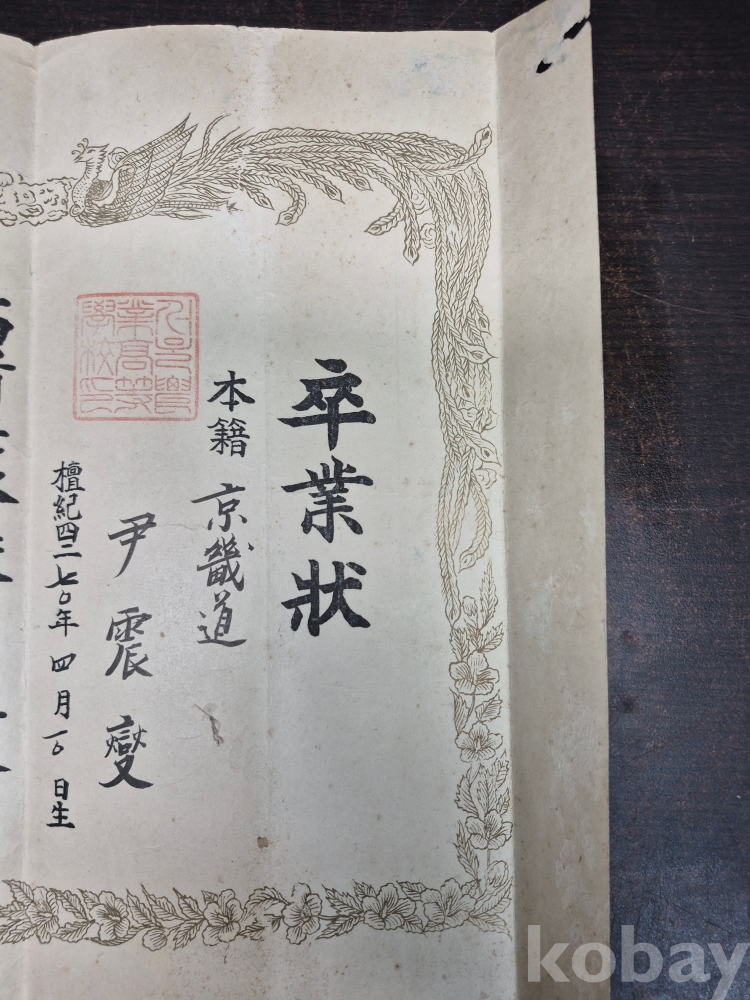 卒業狀
本籍 京畿道
尹震變
檀紀四二七〇年四月一〇日生
kobay